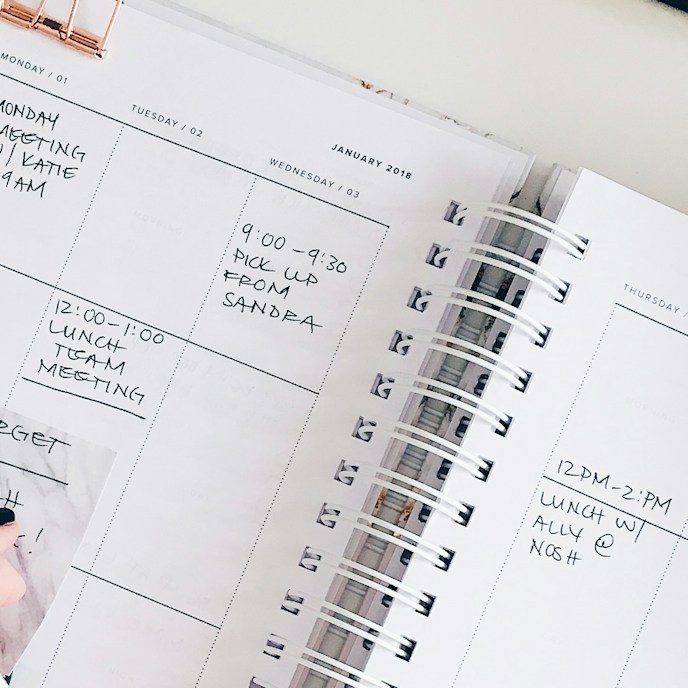 MONDAY / 01
MONDAY
MEETING
W/ KATIE
9AM
TUESDAY / 02
12:00-1:00
LUNCH
TEAM
MEETING
JANUARY 2018
WEDNESDAY / 03
9:00-9:30
PICK UP
FROM
SANDRA
THURSDAY /
12PM-2:PM
LUNCH W/
ALLY @
NOSH